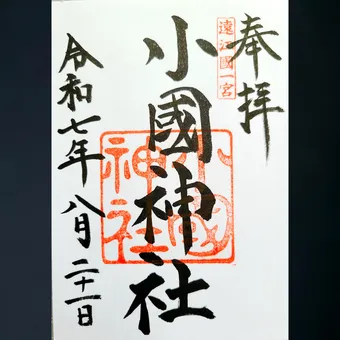 奉拝
遠江國一宮
小國神社
小國神社
令和七年 八月二十一日